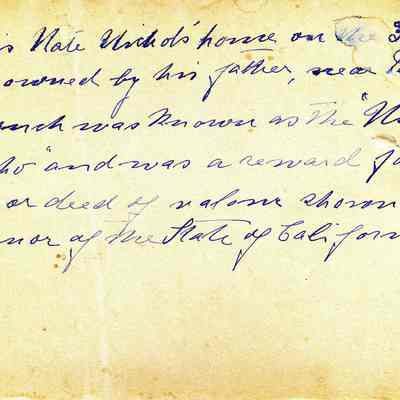 is Nate Nichols' home on the
owned by his father, near
nch was known as the "N
ho" and was a reward fo
or deed of valour shown
nor of the State of Californ